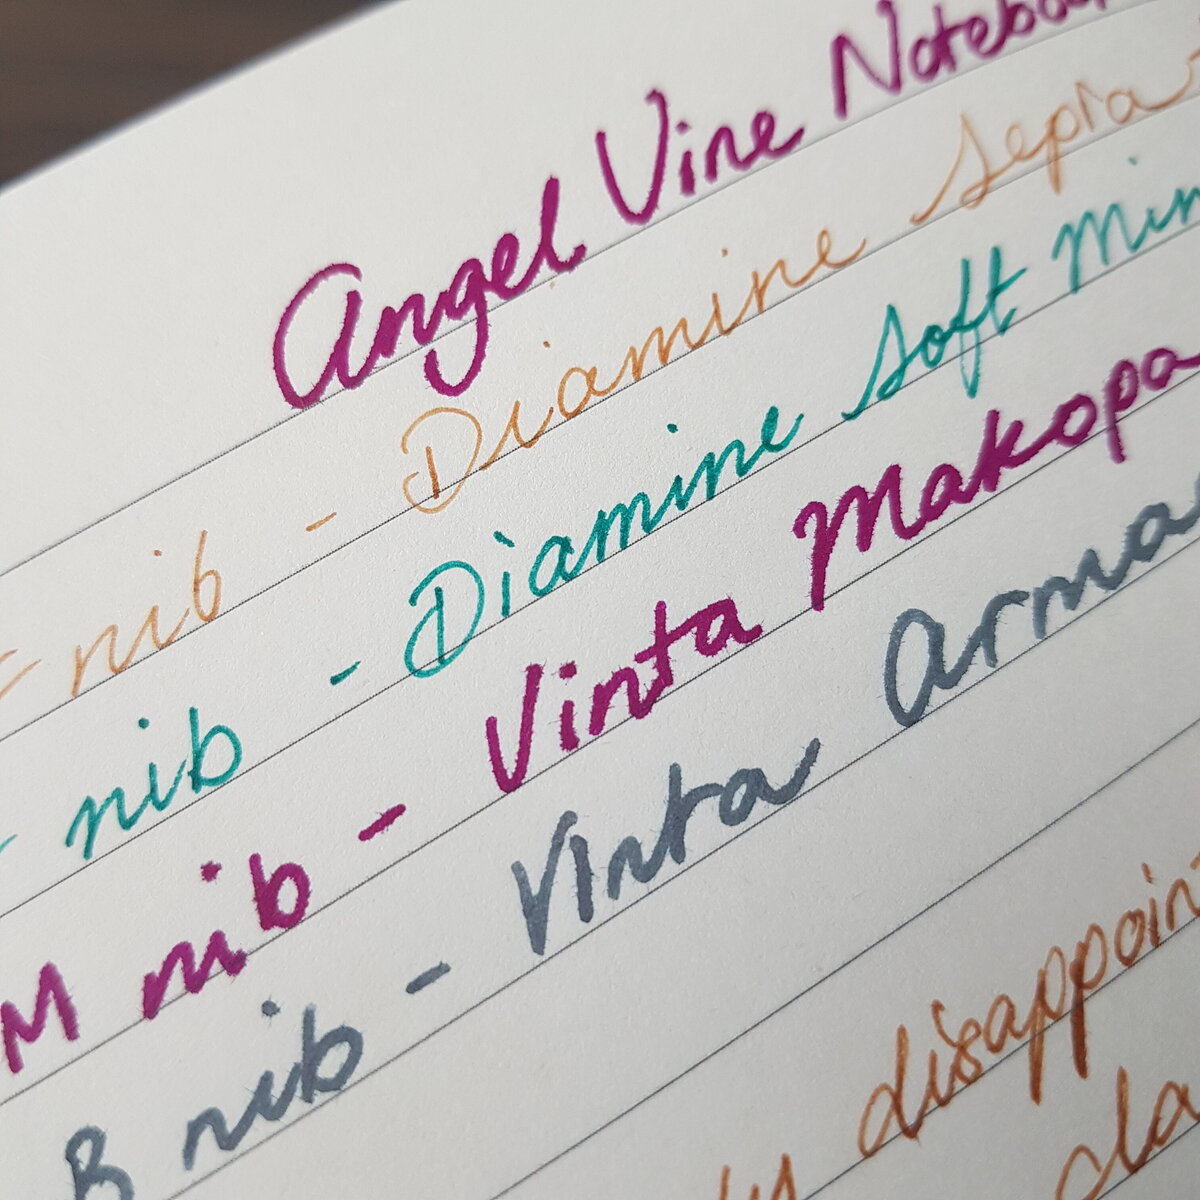 Angel Vine Notebook
nib - Diamine Sepia
nib - Diamine Soft Min
M nib - Vinta Makopa
B nib - Vinta Arma
disappoin